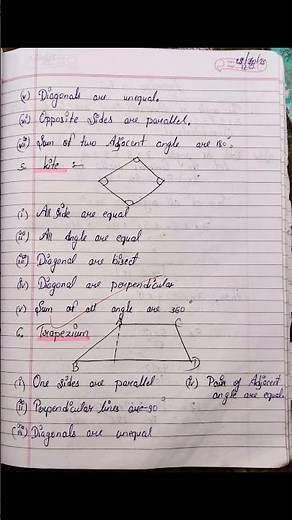 (v) Diagonals are unequal.
(vi) Opposite sides are parallel.
(vii) Sum of two Adjacent angle are 180°.
5. kite :-
(i) All side are equal
(ii) All Angle are equal
(iii) Diagonal are bisect
(iv) Diagonal are perpendicular
(v) Sum of all angle are 360°
6. Trapezium
A C
B D
(i) One sides are parallel
(iv) Pair of Adjacent
angle are equal.
(ii) Perpendicular lines are 90°
(iii) Diagonals are unequal